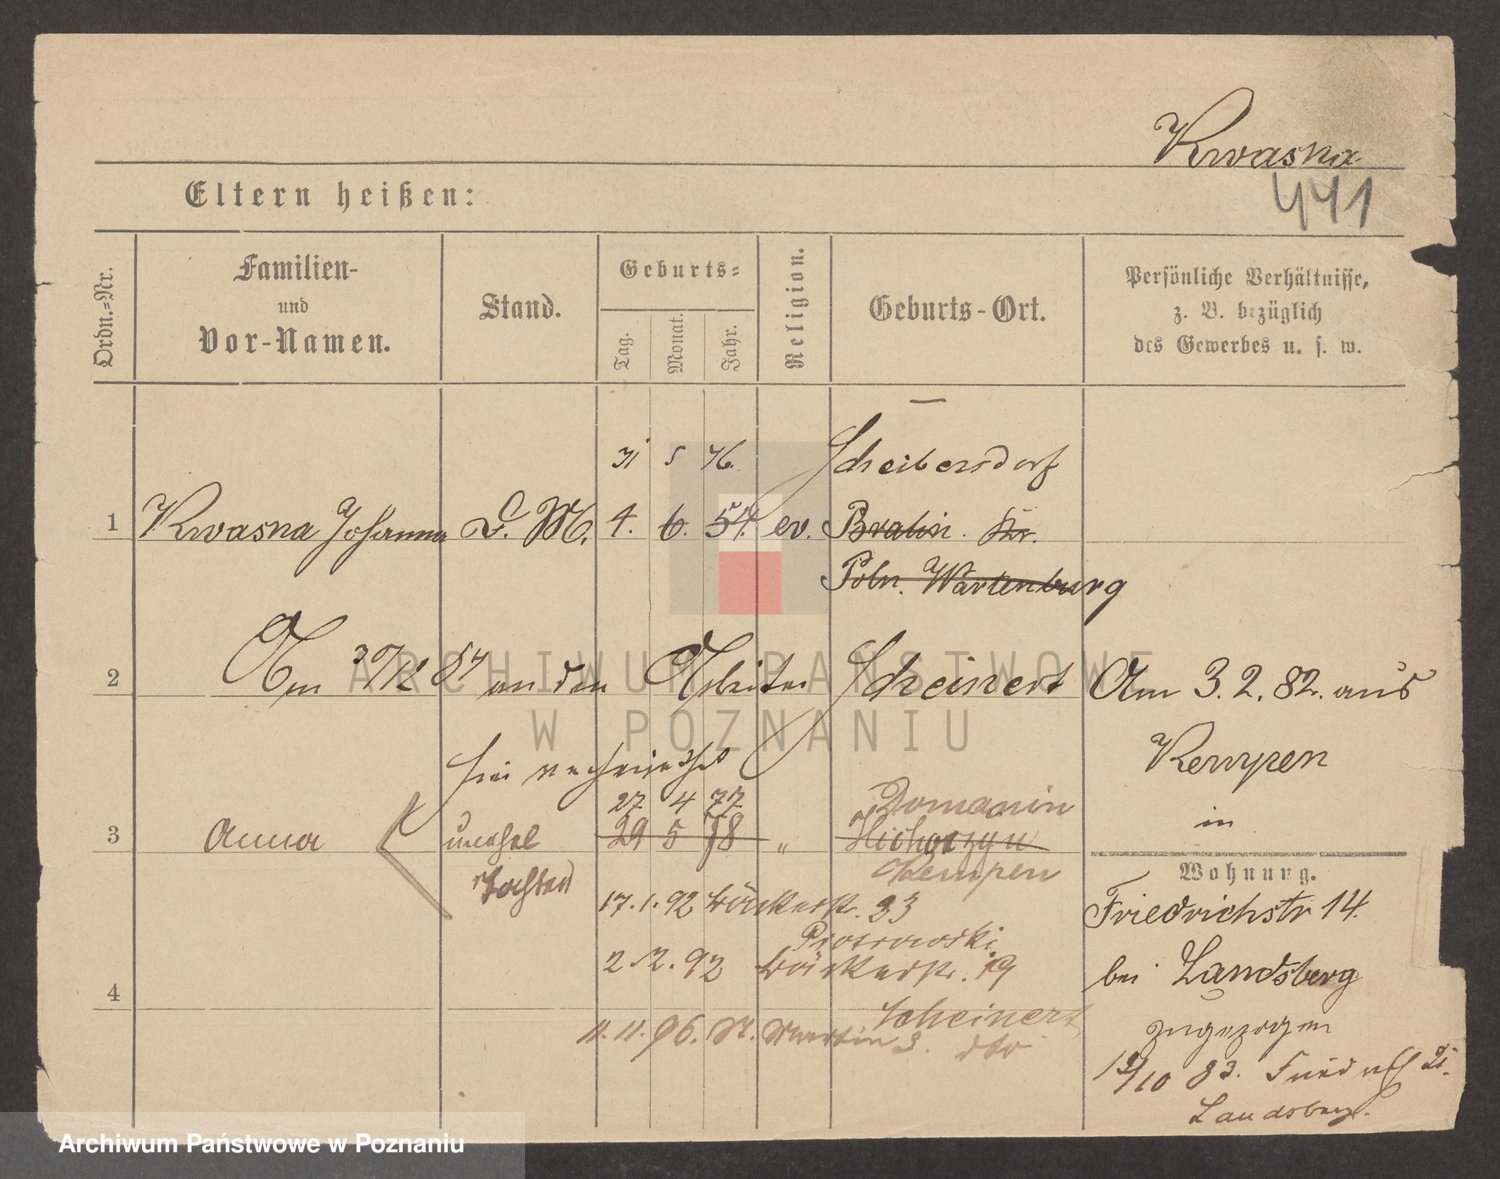 Kwasna
441
Eltern heißen:
Ordn.-Nr.
Familien-
und
Vor-Namen.
Stand.
Geburts-
Tag.
Monat.
Jahr.
Religion.
Geburts-Ort.
Persönliche Verhältnisse,
z. B. bezüglich
des Gewerbes u. s. w.
31 5 76. Schreibersdorf
1 Kwasna Johanna D. M. 4. 6. 54. ev. Bralin. Kr.
Poln. Wartenburg
2 Am 84 an den Arbeiter Scheinert
hier verheirathet
Am 3. 2. 82. aus
Kempen
in
27 4 77 Domanin
3 Anna unehel 29 5 78 "
Tochter Kempen
Wohnung.
Friedrichstr 14.
bei Landsberg
zugezogen
19/10 83.
Landsberg.
17. 1. 92 Bäckerstr. 33
Piotrowski
2. 2. 92 Bäckerstr. 19
4
Scheinert
11. 11. 96. St. Martin 3. dto
ARCHIWUM PAŃSTWOWE
W POZNANIU
Archiwum Państwowe w Poznaniu